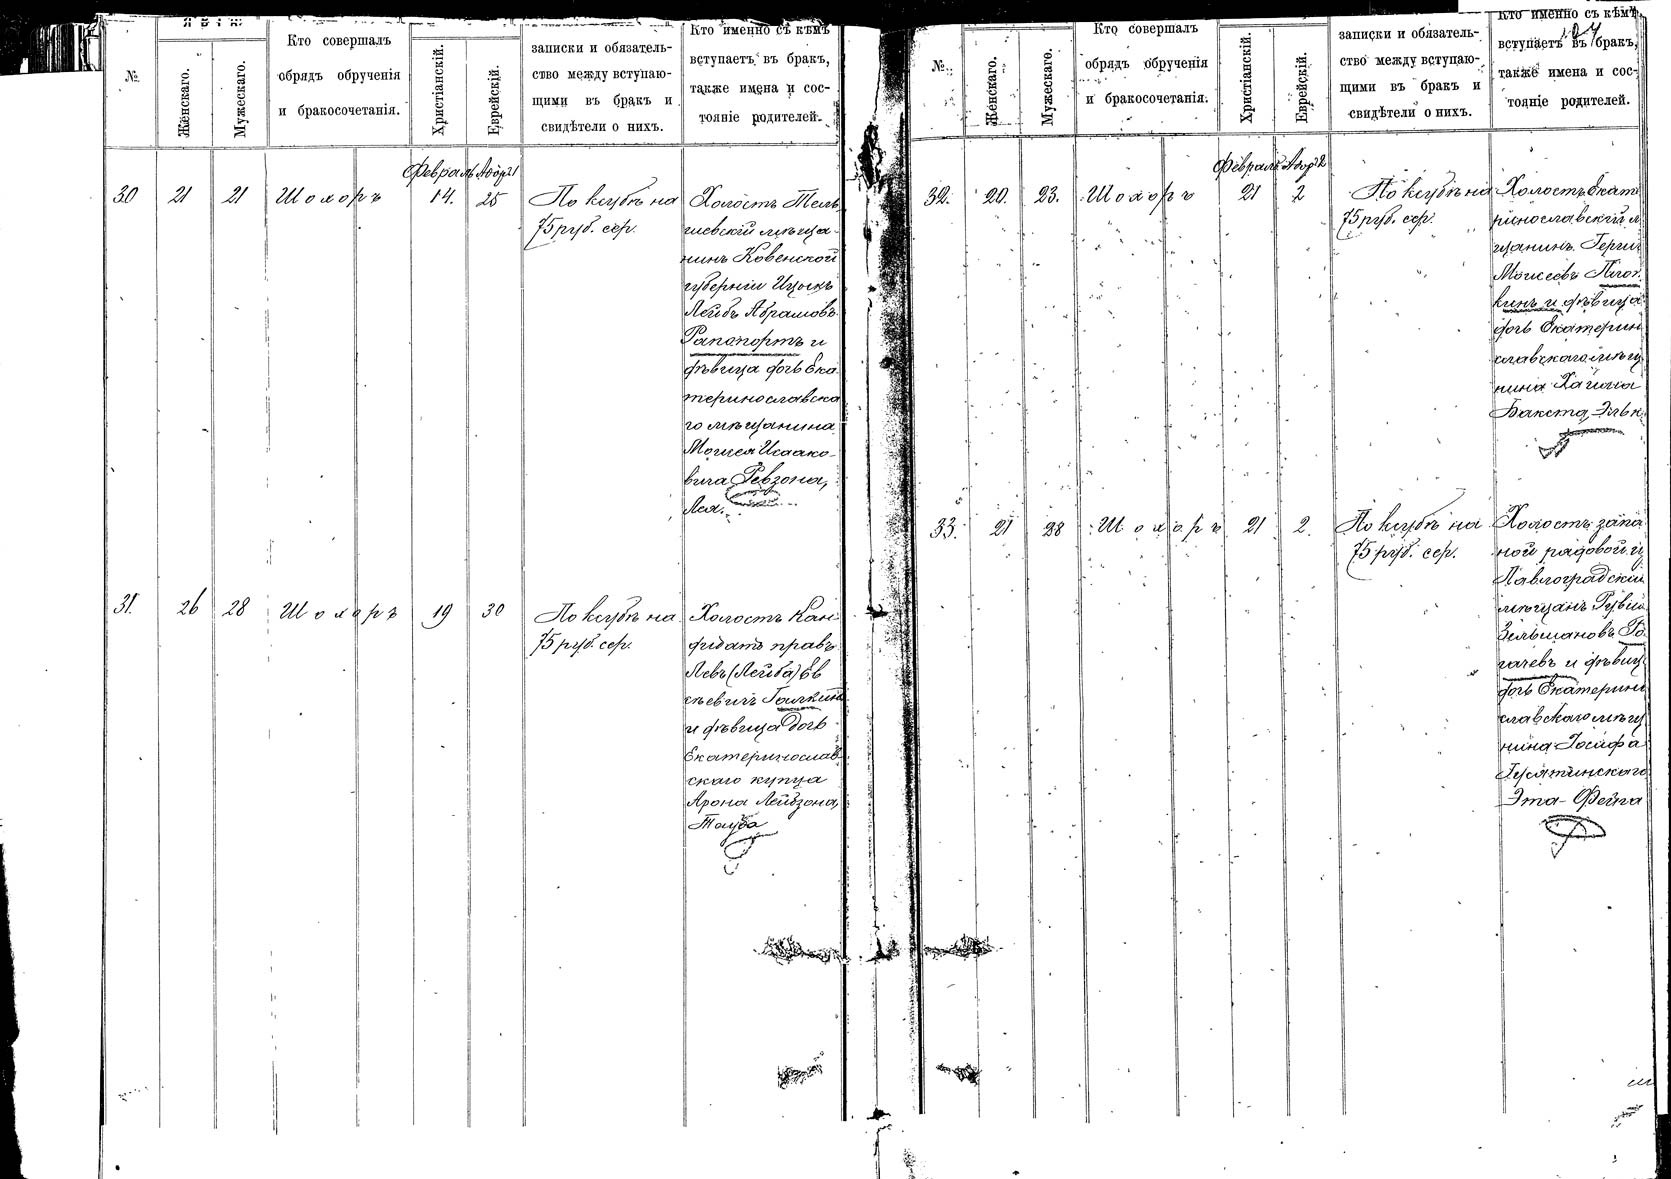 №
Женскаго.
Мужескаго.
Кто совершалъ
обрядъ обрученія
и бракосочетанія.
Христіанскій.
Еврейскій.
записки и обязатель-
ство между вступаю-
щими въ бракъ и
свидѣтели о нихъ.
Кто именно съ кѣмъ
вступаетъ въ бракъ,
также имена и сос-
тояніе родителей.
Февраль Адоръ 1
30 21 21 Шохоръ 14. 25
По ксубѣ на
75 руб. сер.
Холостъ Тель
шевскій мѣща-
нинъ Ковенской
губерніи Ицыкъ
Лейбъ Абрамовъ
Рапопортъ и
дѣвица дочь Ека
теринославска
го мѣщанина
Моисея Исаако-
вича Ревзона,
Лея.
31. 26 28 Шохоръ 19 30
По ксубѣ на
75 руб. сер.
Холостъ Кан
дидатъ правъ
Левъ (Лейба) Ев
сѣевичъ Галкинъ
и дѣвица дочь
Екатеринослав
скаго купца
Арона Лейбзона,
Тауба
№
Женскаго.
Мужескаго.
Кто совершалъ
обрядъ обрученія
и бракосочетанія.
Христіанскій.
Еврейскій.
записки и обязатель-
ство между вступаю-
щими въ бракъ и
свидѣтели о нихъ.
Кто именно съ кѣмъ
вступаетъ въ бракъ,
также имена и сос-
тояніе родителей.
Февраль Адоръ 2
32. 20. 23. Шохоръ 21 2
По ксубѣ на
75 руб. сер.
Холостъ Екате
ринославскій м
щанинъ
Моисеевъ Плот
кинъ и дѣвица
дочь Екатерин
славскаго мѣщ
нина Хаима
Бакста,
33. 21 28 Шохоръ 21 2.
По ксубѣ на
75 руб. сер.
Холостъ запа
ной рядовой и
Павлоградскій
мѣщан
Зельмановъ Ро
гачевъ и дѣвиц
дочь Екатерино
славскаго мѣщ
нина Іосифа
Эта-Фейга